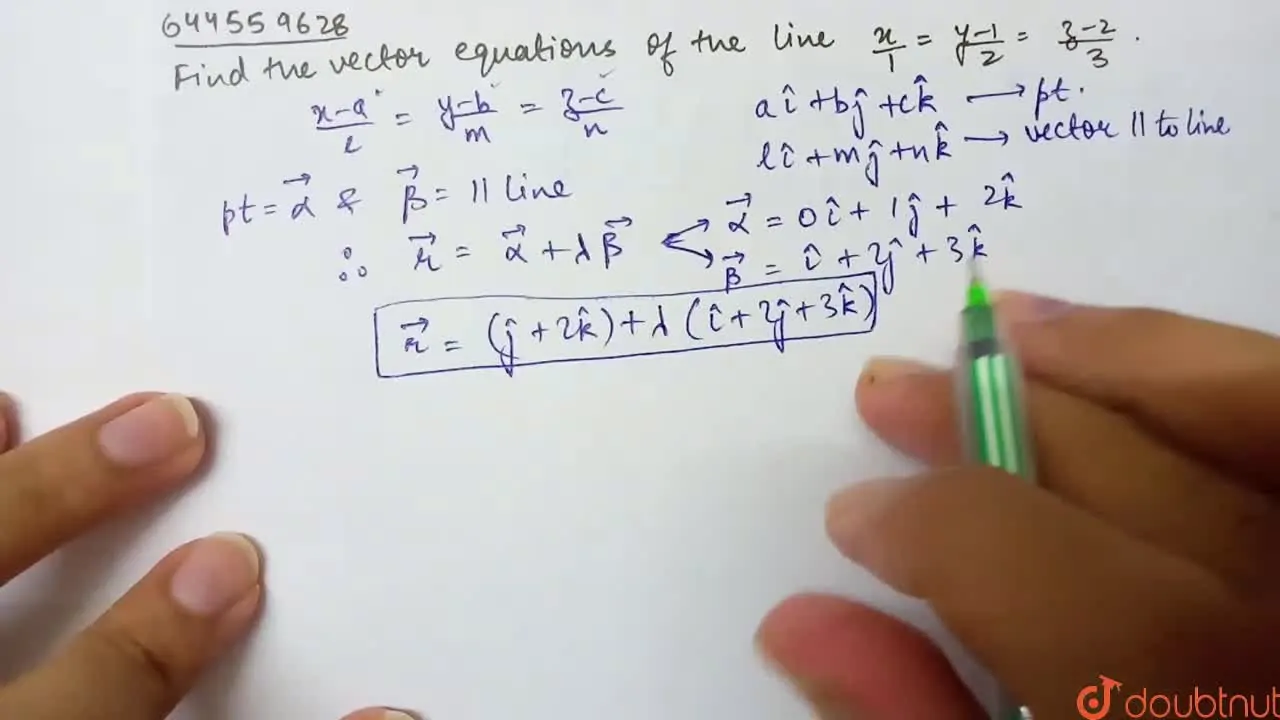 644559628
Find the vector equations of the line x/1 = y-1/2 = z-2/3 .
x-a/l = y-b/m = z-c/n
aî + bĵ + ck̂ → pt.
lî + mĵ + nk̂ → vector || to line
pt = α⃗ & β⃗ = || line
∴ r⃗ = α⃗ + λβ⃗
α⃗ = 0î + 1ĵ + 2k̂
β⃗ = î + 2ĵ + 3k̂
r⃗ = (ĵ + 2k̂) + λ (î + 2ĵ + 3k̂)
doubtnut